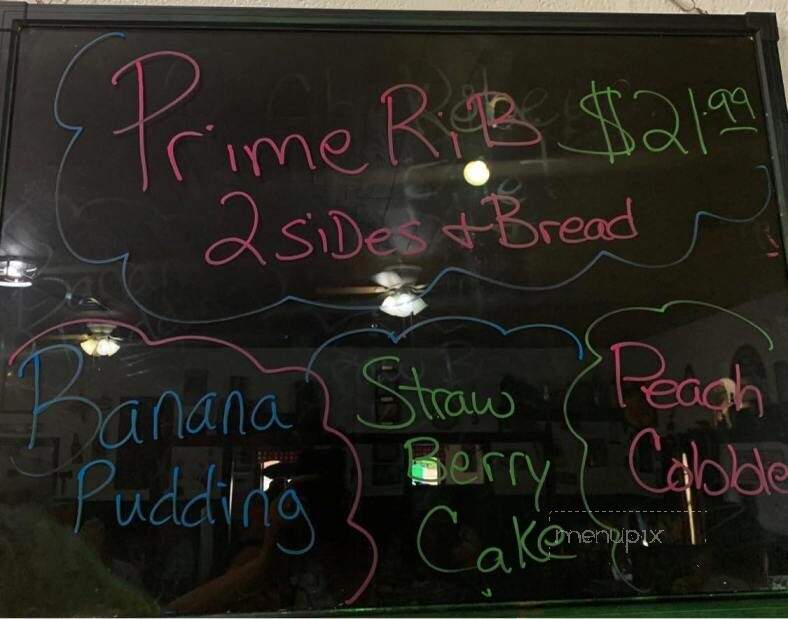 Prime RiB $21.99
2 SiDes + Bread
Banana
Pudding
Straw
Berry
Cake
Peach
Cobble
menupix